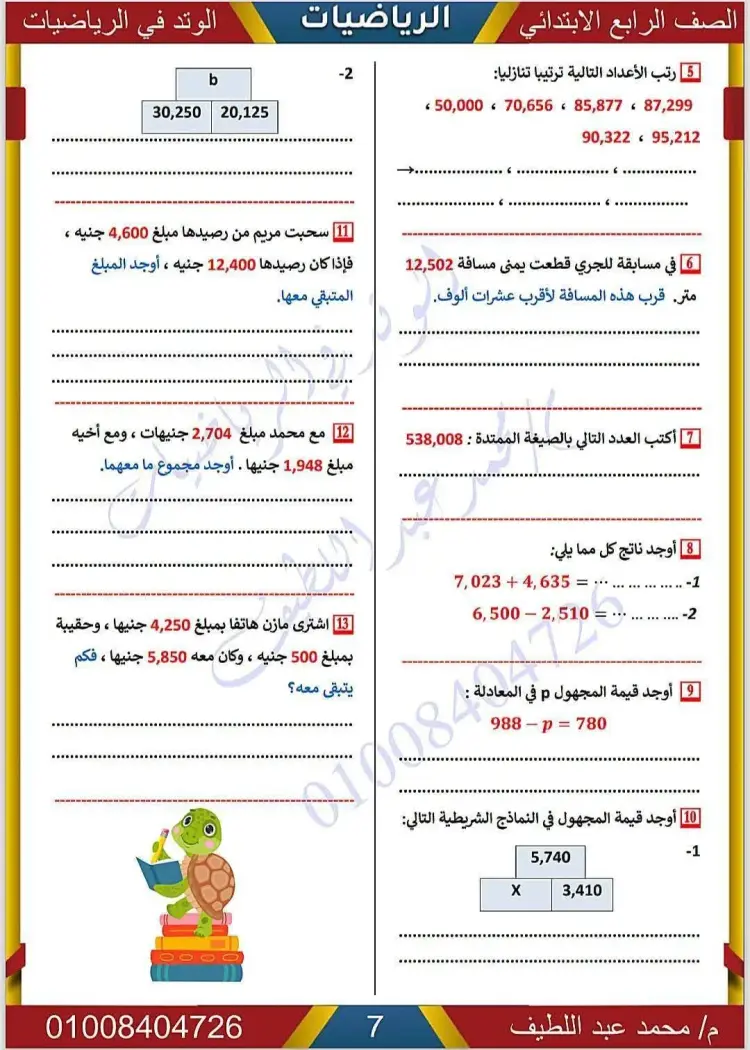 الصف الرابع الابتدائي
الرياضيات
الوتد في الرياضيات
5 رتب الأعداد التالية ترتيبا تنازليا:
87,299 ، 85,877 ، 70,656 ، 50,000 ،
95,212 ، 90,322
................ ، ..................... ، ....................←
................. ، ..................... ، ......................
6 في مسابقة للجري قطعت يمنى مسافة 12,502
متر. قرب هذه المسافة لأقرب عشرات ألوف.
7 أكتب العدد التالي بالصيغة الممتدة : 538,008
8 أوجد ناتج كل مما يلي:
1- 7,023 + 4,635 = ... ... ... ... ..
2- 6,500 − 2,510 = ... ... ... ....
9 أوجد قيمة المجهول p في المعادلة :
988 − p = 780
10 أوجد قيمة المجهول في النماذج الشريطية التالي:
1-
5,740
X 3,410
2-
b
30,250 20,125
11 سحبت مريم من رصيدها مبلغ 4,600 جنيه ،
فإذا كان رصيدها 12,400 جنيه ، أوجد المبلغ
المتبقي معها.
12 مع محمد مبلغ 2,704 جنيهات ، ومع أخيه
مبلغ 1,948 جنيها . أوجد مجموع ما معهما.
13 اشترى مازن هاتفا بمبلغ 4,250 جنيها ، وحقيبة
بمبلغ 500 جنيه ، وكان معه 5,850 جنيها ، فكم
يتبقى معه؟
الوتد في الرياضيات
م/ محمد عبد اللطيف
01008404726
م/ محمد عبد اللطيف
7
01008404726